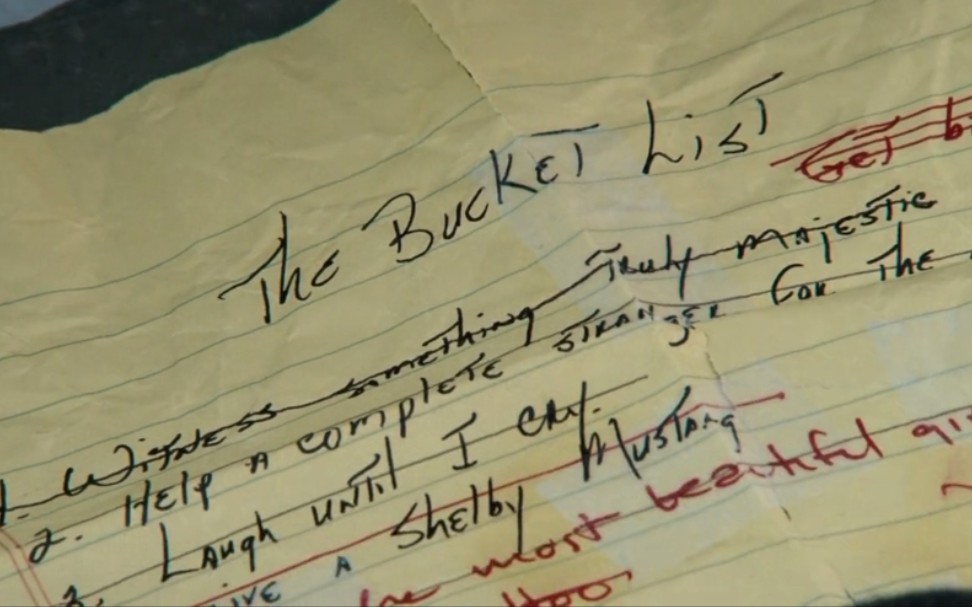 The Bucket List
Get
1. Witness something truly majestic
2. Help a complete stranger for the
3. Laugh until I cry.
A Shelby Mustang
most beautiful